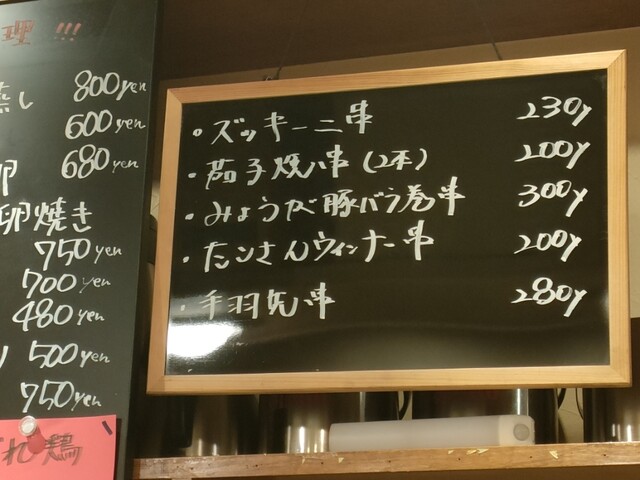 理!!!
蒸し 800yen
600yen
卵 680yen
卵焼き
750yen
700yen
480yen
500yen
750yen
れ鶏
・ズッキーニ串 230y
・茄子焼い串(2本) 200y
・みょうが豚バラ巻串 300y
・たこさんウィンナー串 200y
・手羽先串 280y